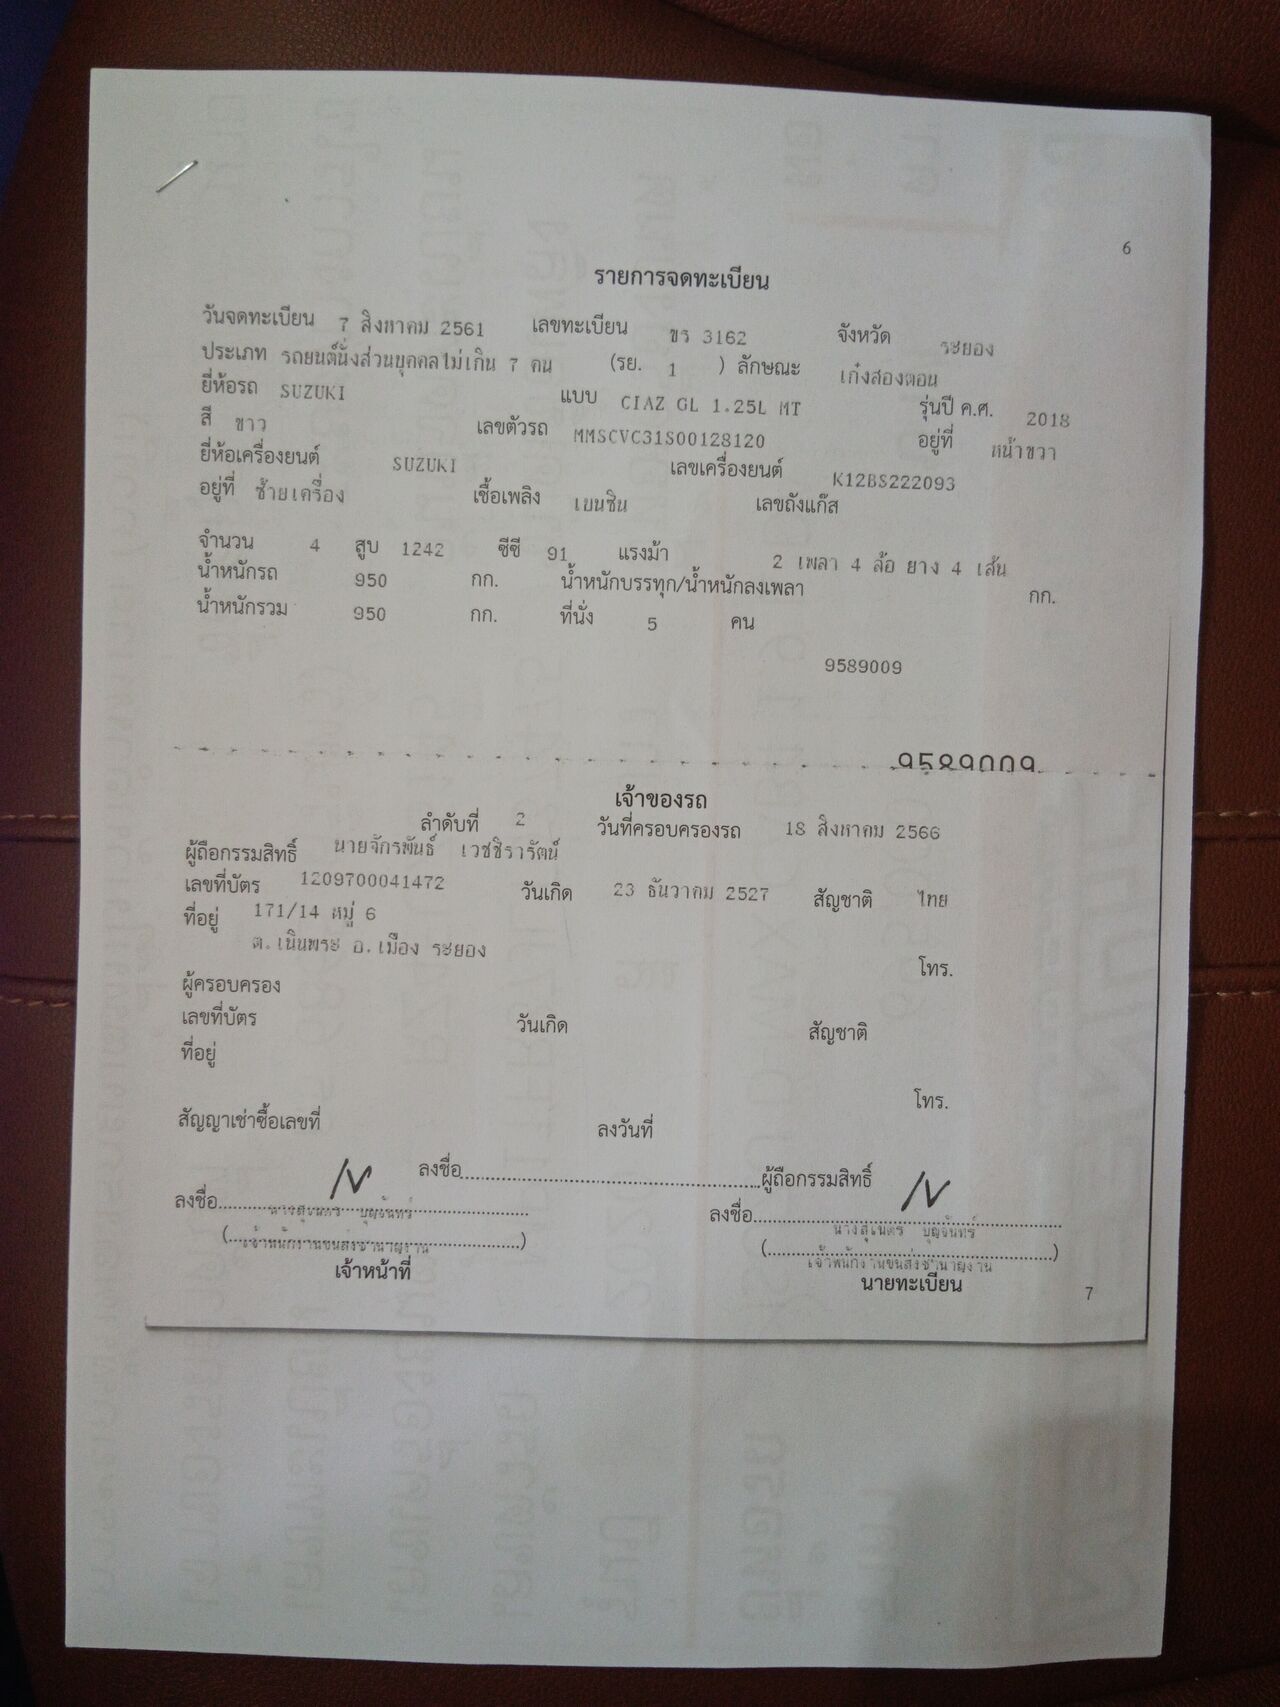 6
รายการจดทะเบียน
วันจดทะเบียน 7 สิงหาคม 2561 เลขทะเบียน ขร 3162 จังหวัด ระยอง
ประเภท รถยนต์นั่งส่วนบุคคลไม่เกิน 7 คน (รย. 1 ) ลักษณะ เก๋งสองตอน
ยี่ห้อรถ SUZUKI แบบ CIAZ GL 1.25L MT รุ่นปี ค.ศ. 2018
สี ขาว เลขตัวรถ MMSCVC31S00128120 อยู่ที่ หน้าขวา
ยี่ห้อเครื่องยนต์ SUZUKI เลขเครื่องยนต์ K12BS222093
อยู่ที่ ซ้ายเครื่อง เชื้อเพลิง เบนซิน เลขถังแก๊ส
จำนวน 4 สูบ 1242 ซีซี 91 แรงม้า 2 เพลา 4 ล้อ ยาง 4 เส้น
น้ำหนักรถ 950 กก. น้ำหนักบรรทุก/น้ำหนักลงเพลา กก.
น้ำหนักรวม 950 กก. ที่นั่ง 5 คน
9589009
9589009
เจ้าของรถ
ลำดับที่ 2 วันที่ครอบครองรถ 18 สิงหาคม 2566
ผู้ถือกรรมสิทธิ์ นายจักรพันธ์ เวชชิรารัตน์
เลขที่บัตร 1209700041472 วันเกิด 23 ธันวาคม 2527 สัญชาติ ไทย
ที่อยู่ 171/14 หมู่ 6
ต.เนินพระ อ.เมือง ระยอง
โทร.
ผู้ครอบครอง
เลขที่บัตร วันเกิด สัญชาติ
ที่อยู่
โทร.
สัญญาเช่าซื้อเลขที่ ลงวันที่
ลงชื่อ ผู้ถือกรรมสิทธิ์
ลงชื่อ นางสุเนตร บุญจันทร์ ลงชื่อ นางสุเนตร บุญจันทร์
(เจ้าพนักงานขนส่งชำนาญงาน) (เจ้าพนักงานขนส่งชำนาญงาน)
เจ้าหน้าที่ นายทะเบียน
7